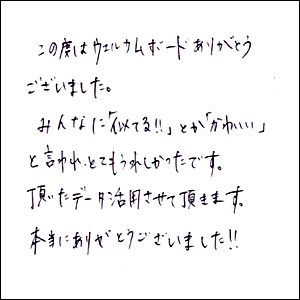 この度はウェルカムボードありがとう
ございました。
みんなに「似てる!!」とか「かわいい」
と言われ、とてもうれしかったです。
頂いたデータ活用させて頂きます。
本当にありがとうございました!!